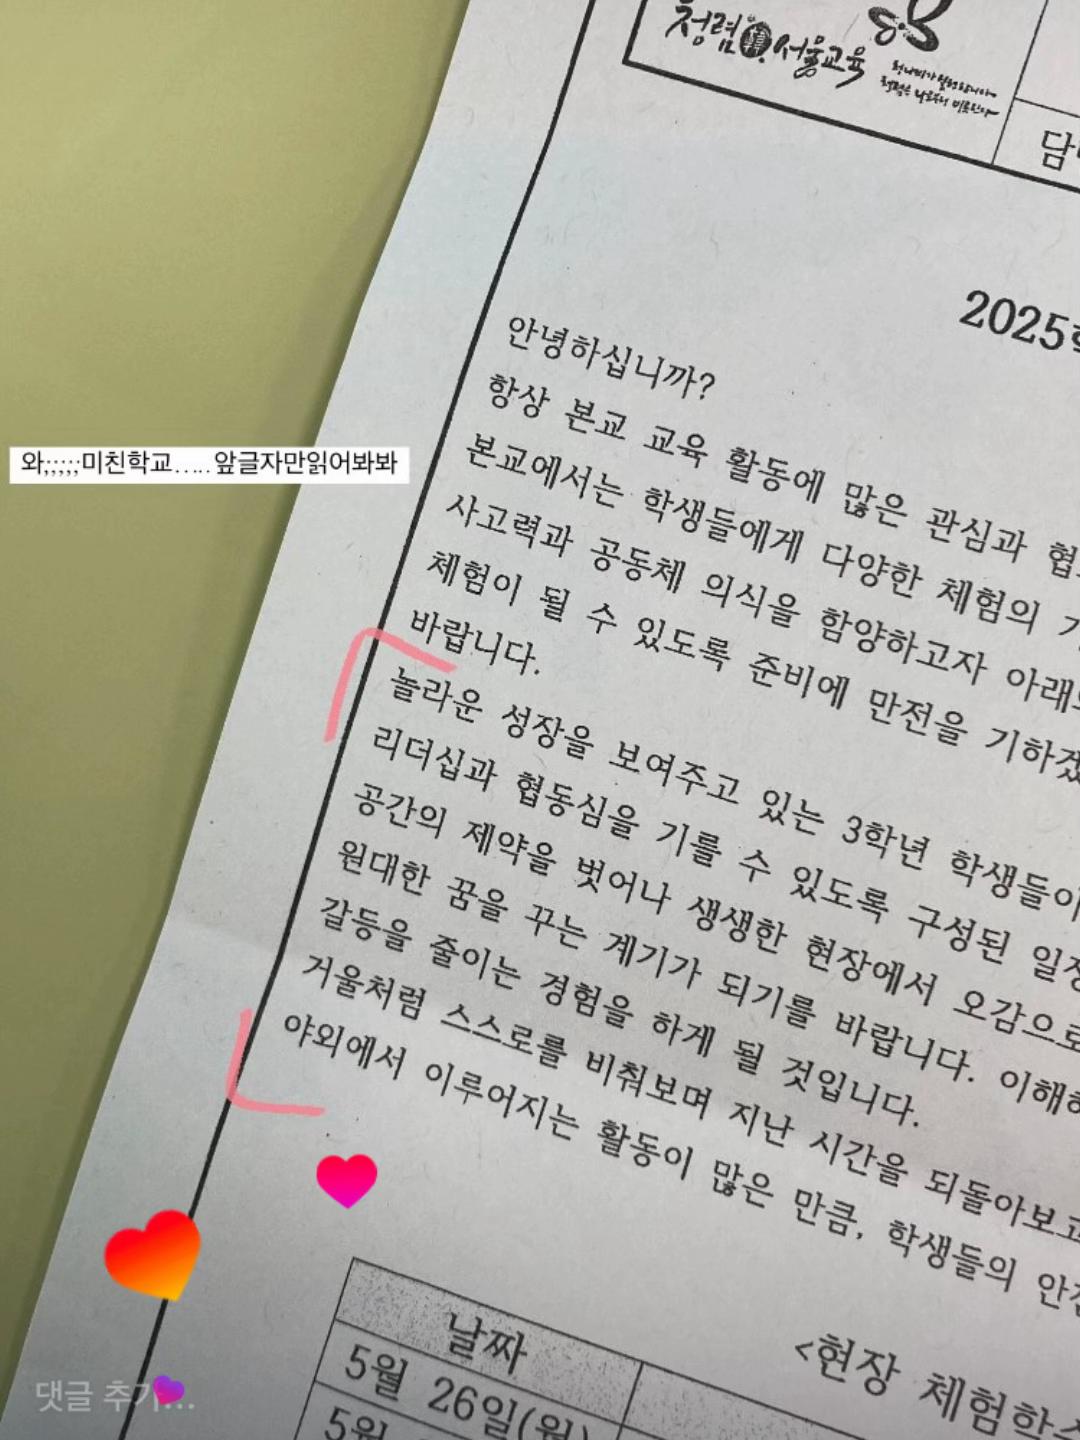 청렴 서울교육
담
2025학
안녕하십니까?
항상 본교 교육 활동에 많은 관심과 협
본교에서는 학생들에게 다양한 체험의
와;;;;;미친학교.....앞글자만읽어봐봐
사고력과 공동체 의식을 함양하고자 아래
체험이 될 수 있도록 준비에 만전을 기하겠
바랍니다.
놀라운 성장을 보여주고 있는 3학년 학생들이
리더십과 협동심을 기를 수 있도록 구성된 일정
공간의 제약을 벗어나 생생한 현장에서 오감으로
원대한 꿈을 꾸는 계기가 되기를 바랍니다. 이해하
갈등을 줄이는 경험을 하게 될 것입니다.
거울처럼 스스로를 비춰보며 지난 시간을 되돌아보고
야외에서 이루어지는 활동이 많은 만큼, 학생들의 안전
<현장 체험학습
날짜
5월 26일(월)
5월
댓글 추가...